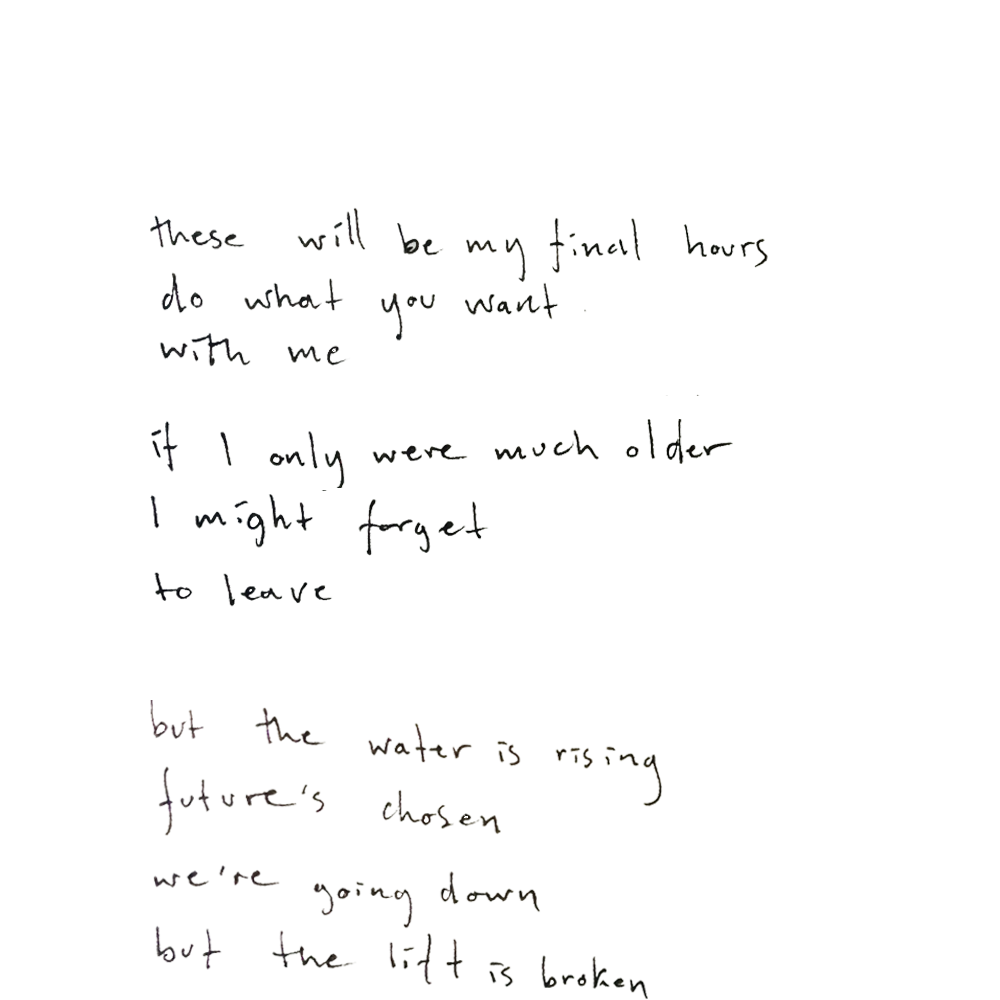 these will be my final hours
do what you want
with me
if I only were much older
I might forget
to leave
but the water is rising
future's chosen
we're going down
but the lift is broken